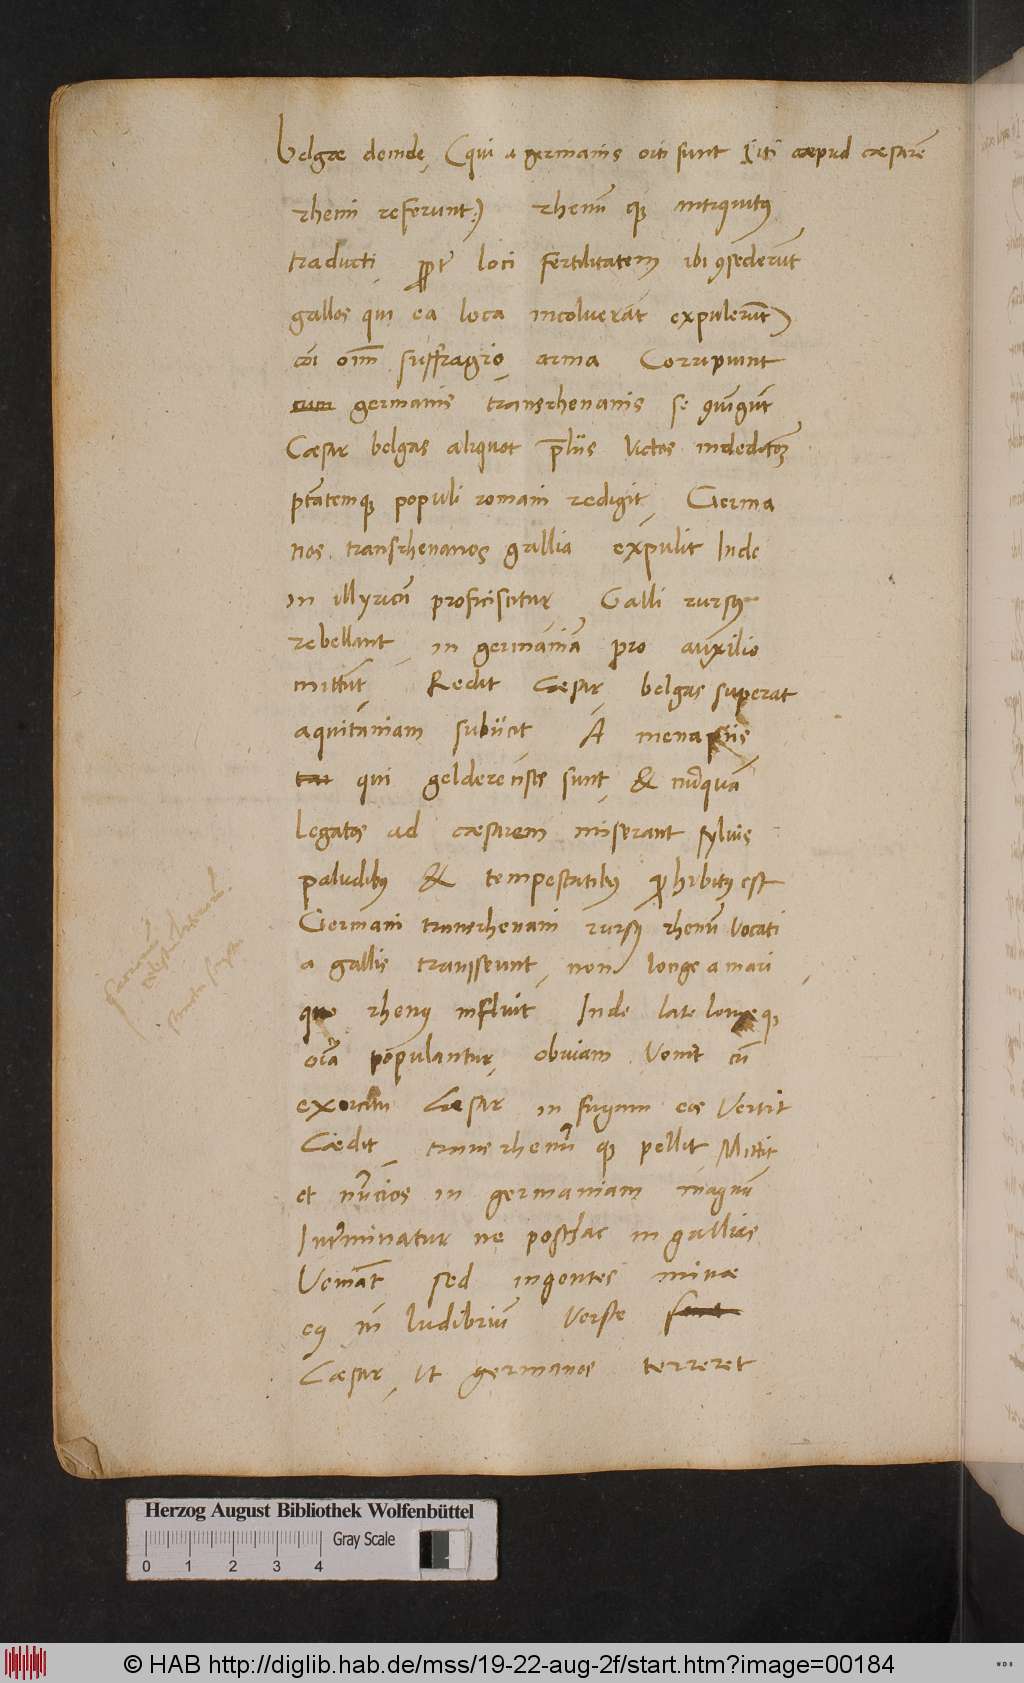 Belgæ deindę (qui a germanis orti sunt sicut apud cæsarē
rhemi referunt:) rhenū qꝫ antiquitꝰ
traducti ꝓpt loci fertilitatem ibi ꝯsederūt
gallos qui ea loca incoluerāt expulerūt)
cōi oīm suffragio, arma Corripiunt
cum germanis transrhenanis se ꝯiūgūt
Cæsar belgas aliquot p̄liis victos in deditōꝫ
ptātemqꝫ populi romani redigit, Germa
nos transrhenanos gallia expulit Inde
in illyricū proficiscitur, Galli rursꝰ
rebellant, in germāniā pro auxilio
mittūt, Redit cæsar, belgas superat
aquitaniam subiicit, A menapiis
qui gelderēnses sunt, & nūquā
legatos ad cæsarem miserant sylvis
paludibꝰ & tempestatibꝰ ꝓhibitꝰ est
Germani transrhenani rursꝰ rhenū vocati
a gallis transseunt, non longe a mari,
quo rhenꝰ influit Inde late longeqꝫ
oīa populantur, obviam venit cū
exercitu Cæsar in fugam eos vertit
Cædit, trans rhenū qꝫ pellit Mittit
et nūcios in germaniam magnū
Interminatur ne posthac in gallias
Veniāt sed ingentes minæ
eꝰ in ludibriū versæ sunt
Cæsar, ut germanos terreret
Herzog August Bibliothek Wolfenbüttel
Gray Scale
0 1 2 3 4
© HAB http://diglib.hab.de/mss/19-22-aug-2f/start.htm?image=00184